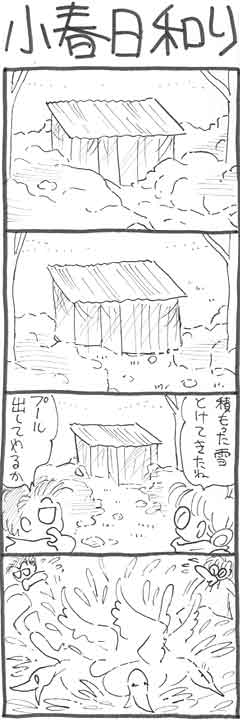 小春日和り
積もった雪
とけてきたね
プール
出してやるか